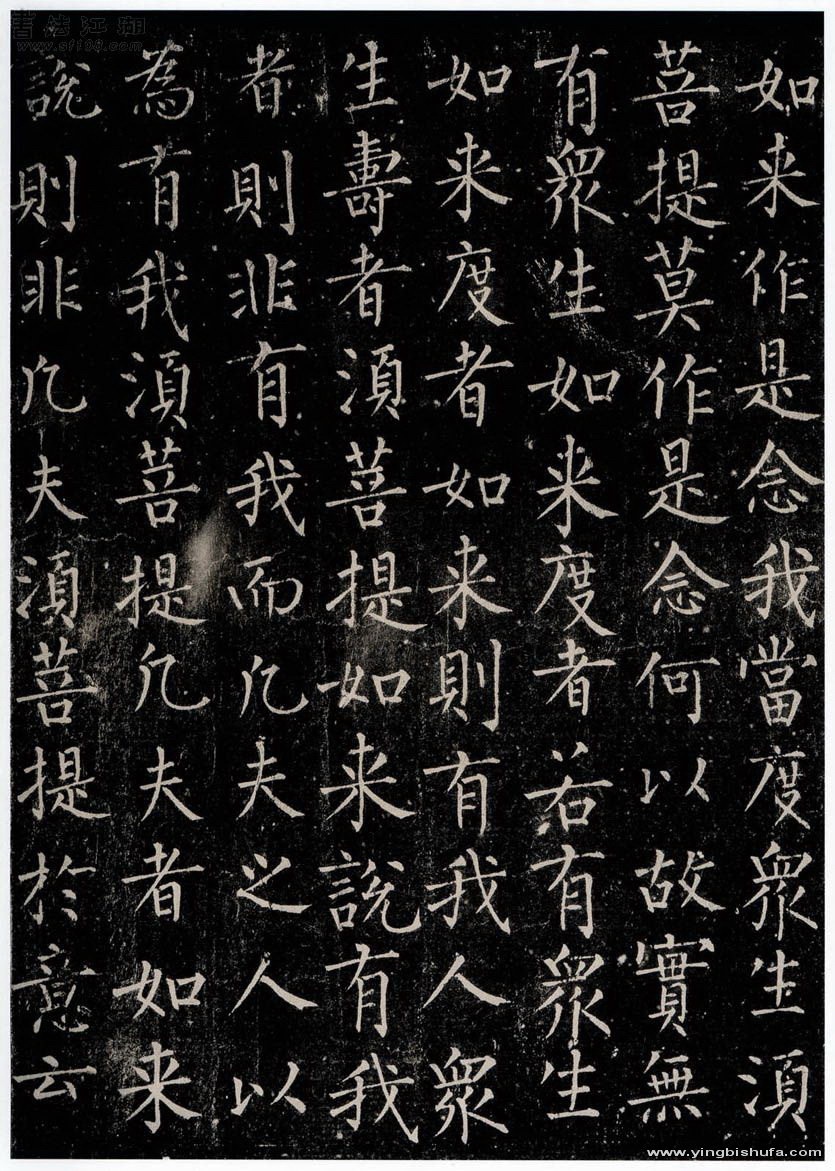 如来作是念我當度衆生湏
菩提莫作是念何以故實無
有衆生如来度者若有衆生
如来度者如来則有我人衆
生壽者湏菩提如来說有我
者則非有我而凡夫之人以
為有我湏菩提凡夫者如来
說則非凡夫湏菩提於意云
書法江湖
www.sf108.com
www.yingbishufa.com